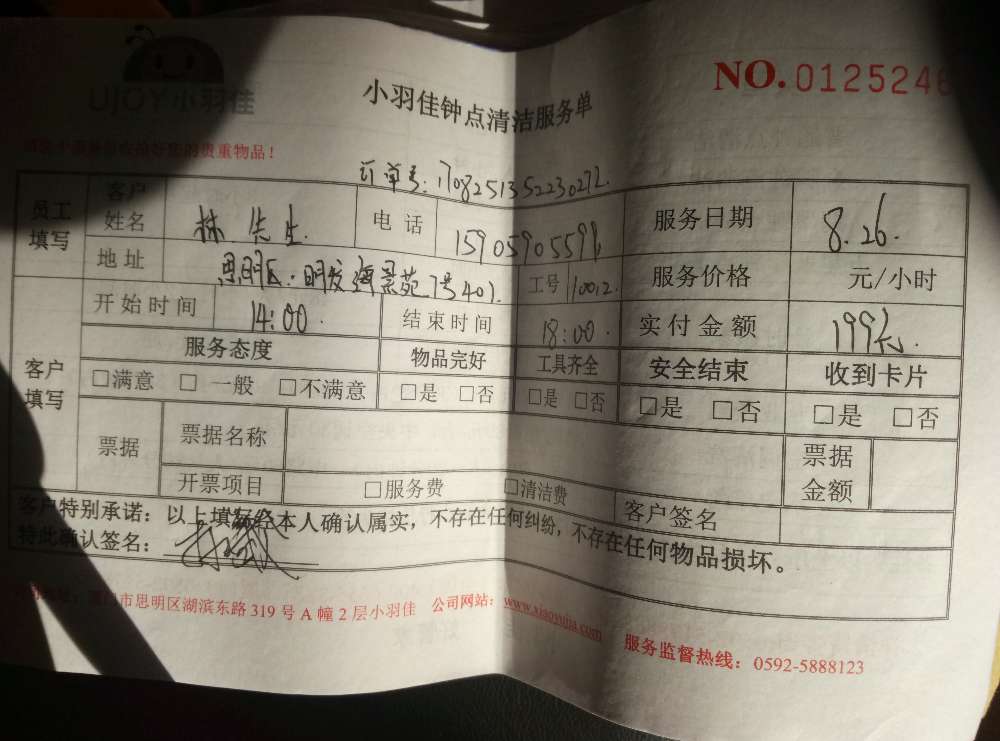 UJOY小羽佳
小羽佳钟点清洁服务单
NO.0125246
贵重物品！
订单号：1708251352230272
员工填写 客户姓名 林先生 电话 服务日期 8.26
地址 思明区·明发海景苑7号401 工号 10012 服务价格 元/小时
开始时间 14:00 结束时间 18:00 实付金额 199元
客户填写 服务态度 物品完好 工具齐全 安全结束 收到卡片
□满意 □一般 □不满意 □是 □否 □是 □否 □是 □否 □是 □否
票据 票据名称 票据金额
开票项目 □服务费 □清洁费 客户签名
客户特别承诺：以上填写经本人确认属实，不存在任何纠纷，不存在任何物品损坏。
特此确认签名：
公司地址：厦门市思明区湖滨东路319号A幢2层小羽佳 公司网站：www.xiaoyujia.com 服务监督热线：0592-5888123